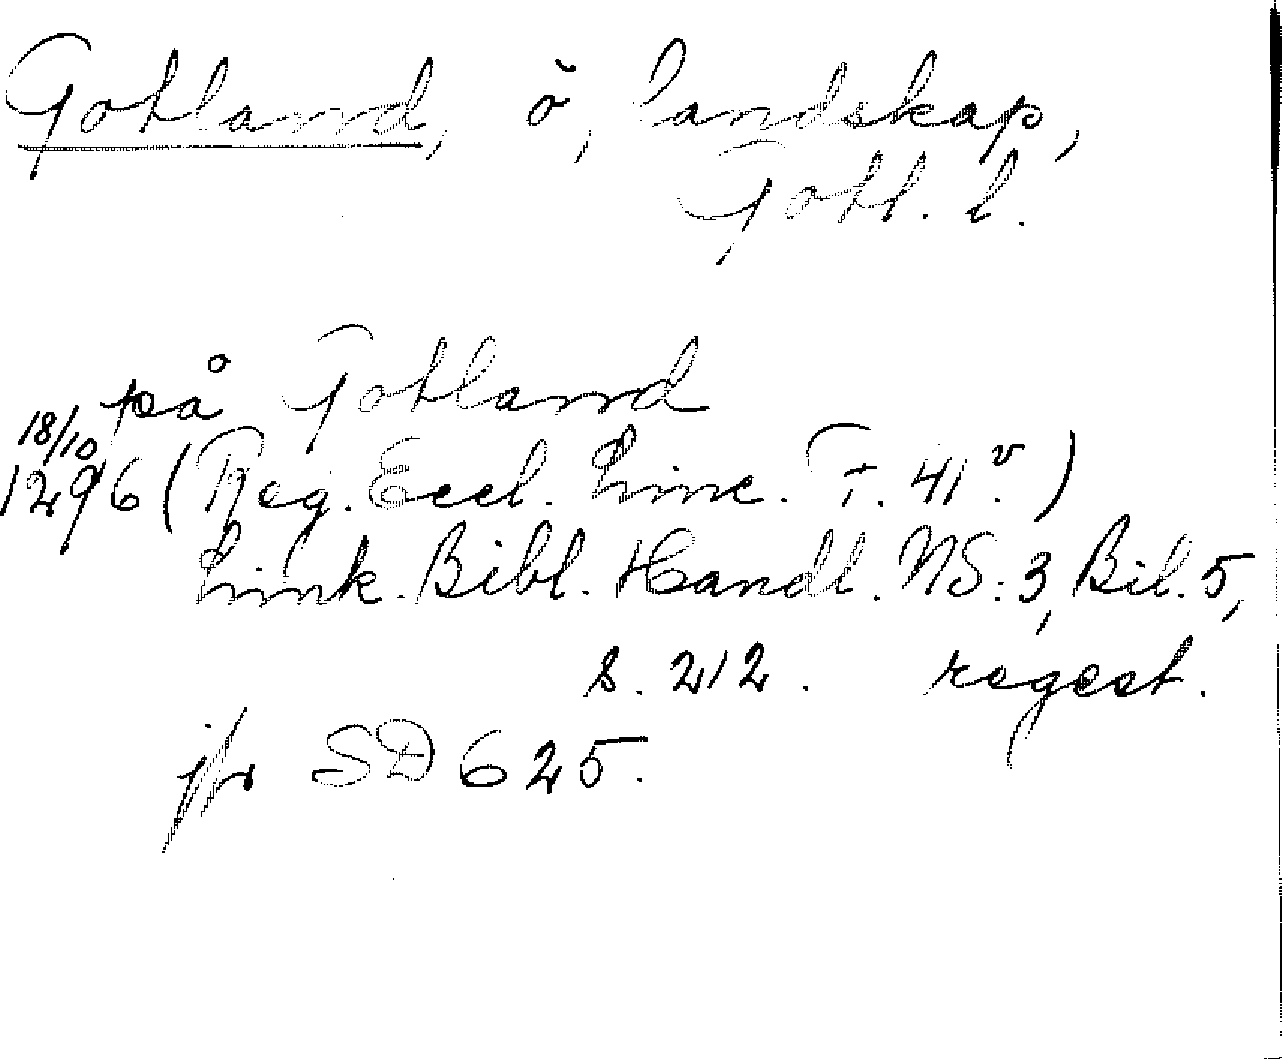 Gotland, ö, landskap,
Gotl. l.
på Gotland
18/10
1296 (Reg. Eccl. Linc. F. 41v.)
Link. Bibl. Handl. NS: 3, Bil. 5,
s. 212. regest.
jfr SD 625.